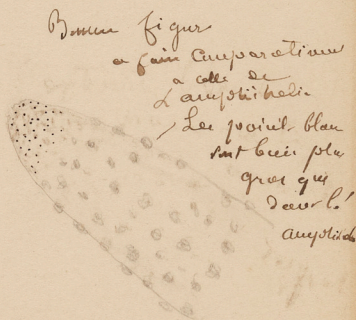 Bonne figure
a faire comparativem
a celle de
L'amphiheli
Les points blan
sont bien plus
gros que
dans l'
amphihel